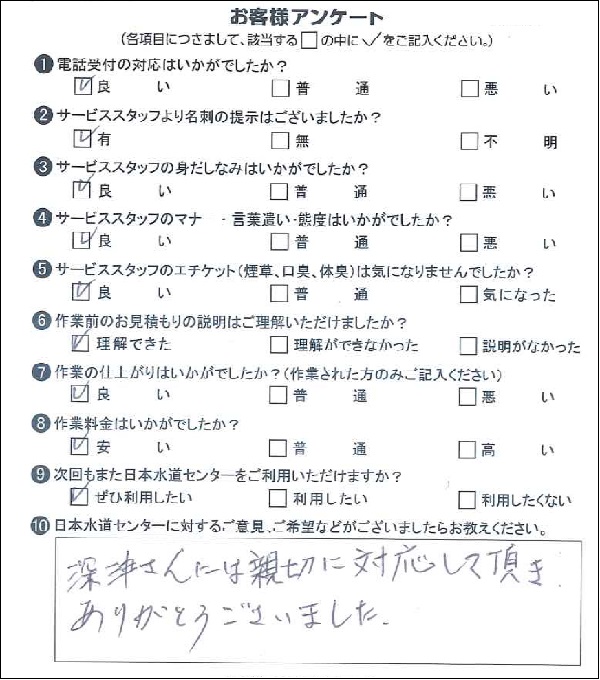 お客様アンケート
(各項目につきまして、該当する□の中に✓をご記入ください。)
❶ 電話受付の対応はいかがでしたか？
☑良い □普通 □悪い
❷ サービススタッフより名刺の提示はございましたか？
☑有 □無 □不明
❸ サービススタッフの身だしなみはいかがでしたか？
☑良い □普通 □悪い
❹ サービススタッフのマナー・言葉遣い・態度はいかがでしたか？
☑良い □普通 □悪い
❺ サービススタッフのエチケット(煙草、口臭、体臭)は気になりませんでしたか？
☑良い □普通 □気になった
❻ 作業前のお見積もりの説明はご理解いただけましたか？
☑理解できた □理解ができなかった □説明がなかった
❼ 作業の仕上がりはいかがでしたか？(作業された方のみご記入ください)
☑良い □普通 □悪い
❽ 作業料金はいかがでしたか？
☑安い □普通 □高い
❾ 次回もまた日本水道センターをご利用いただけますか？
☑ぜひ利用したい □利用したい □利用したくない
❿ 日本水道センターに対するご意見、ご希望などがございましたらお教えください。
深津さんには親切に対応して頂き
ありがとうございました。